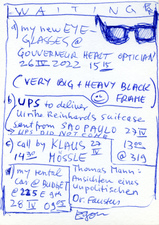 WAITING
a) my new EYE-
GLASSES @
GOUVERNEUR HEALT OPTICIAN
26 IV 2022 15 15
(VERY BIG + HEAVY BLACK
FRAME)
b) UPS to deliver
Ulrike Reinhards suitcase
sent from SAO PAULO 27 IV
UPS DID NOT COME
c) call by KLAUS 27 IV
14 30 MÖSSLE 13 00
@ 319
d) my rental
car @ BUDGET
@ 225 E 9
28 IV 09 00
Thomas Mann:
Ansichten eines
unpolitischen
Dr. Faustus